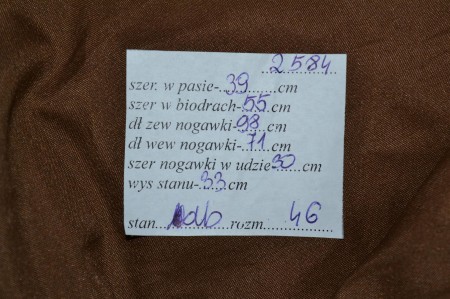 2584
szer. w pasie-39cm
szer w biodrach-55cm
dł zew nogawki-98cm
dł wew nogawki-71cm
szer nogawki w udzie30cm
wys stanu-33cm
stan rozm 46